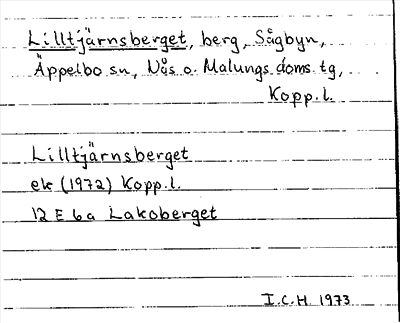 Lilltjärnsberget, berg, Sågbyn,
Äppelbo sn, Nås o. Malungs doms. tg,
Kopp.l.
Lilltjärnsberget
ek (1972) Kopp.l.
12 E 6a Lakoberget
I.C.H. 1973